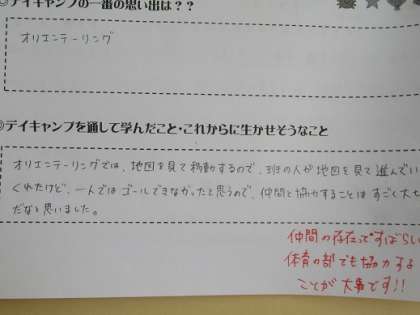 デイキャンプの一番の思い出は??
オリエンテーリング
◎デイキャンプを通して学んだこと・これからに生かせそうなこと
オリエンテーリングでは、地図を見て移動するので、班の人が地図を見て進んでい
くれたけど、一人ではゴールできなかったと思うので、仲間と協力することはすごく大七
だなと思いました。
仲間の存在ってすばらしい
体育の部でも協力する
ことが大事です!!